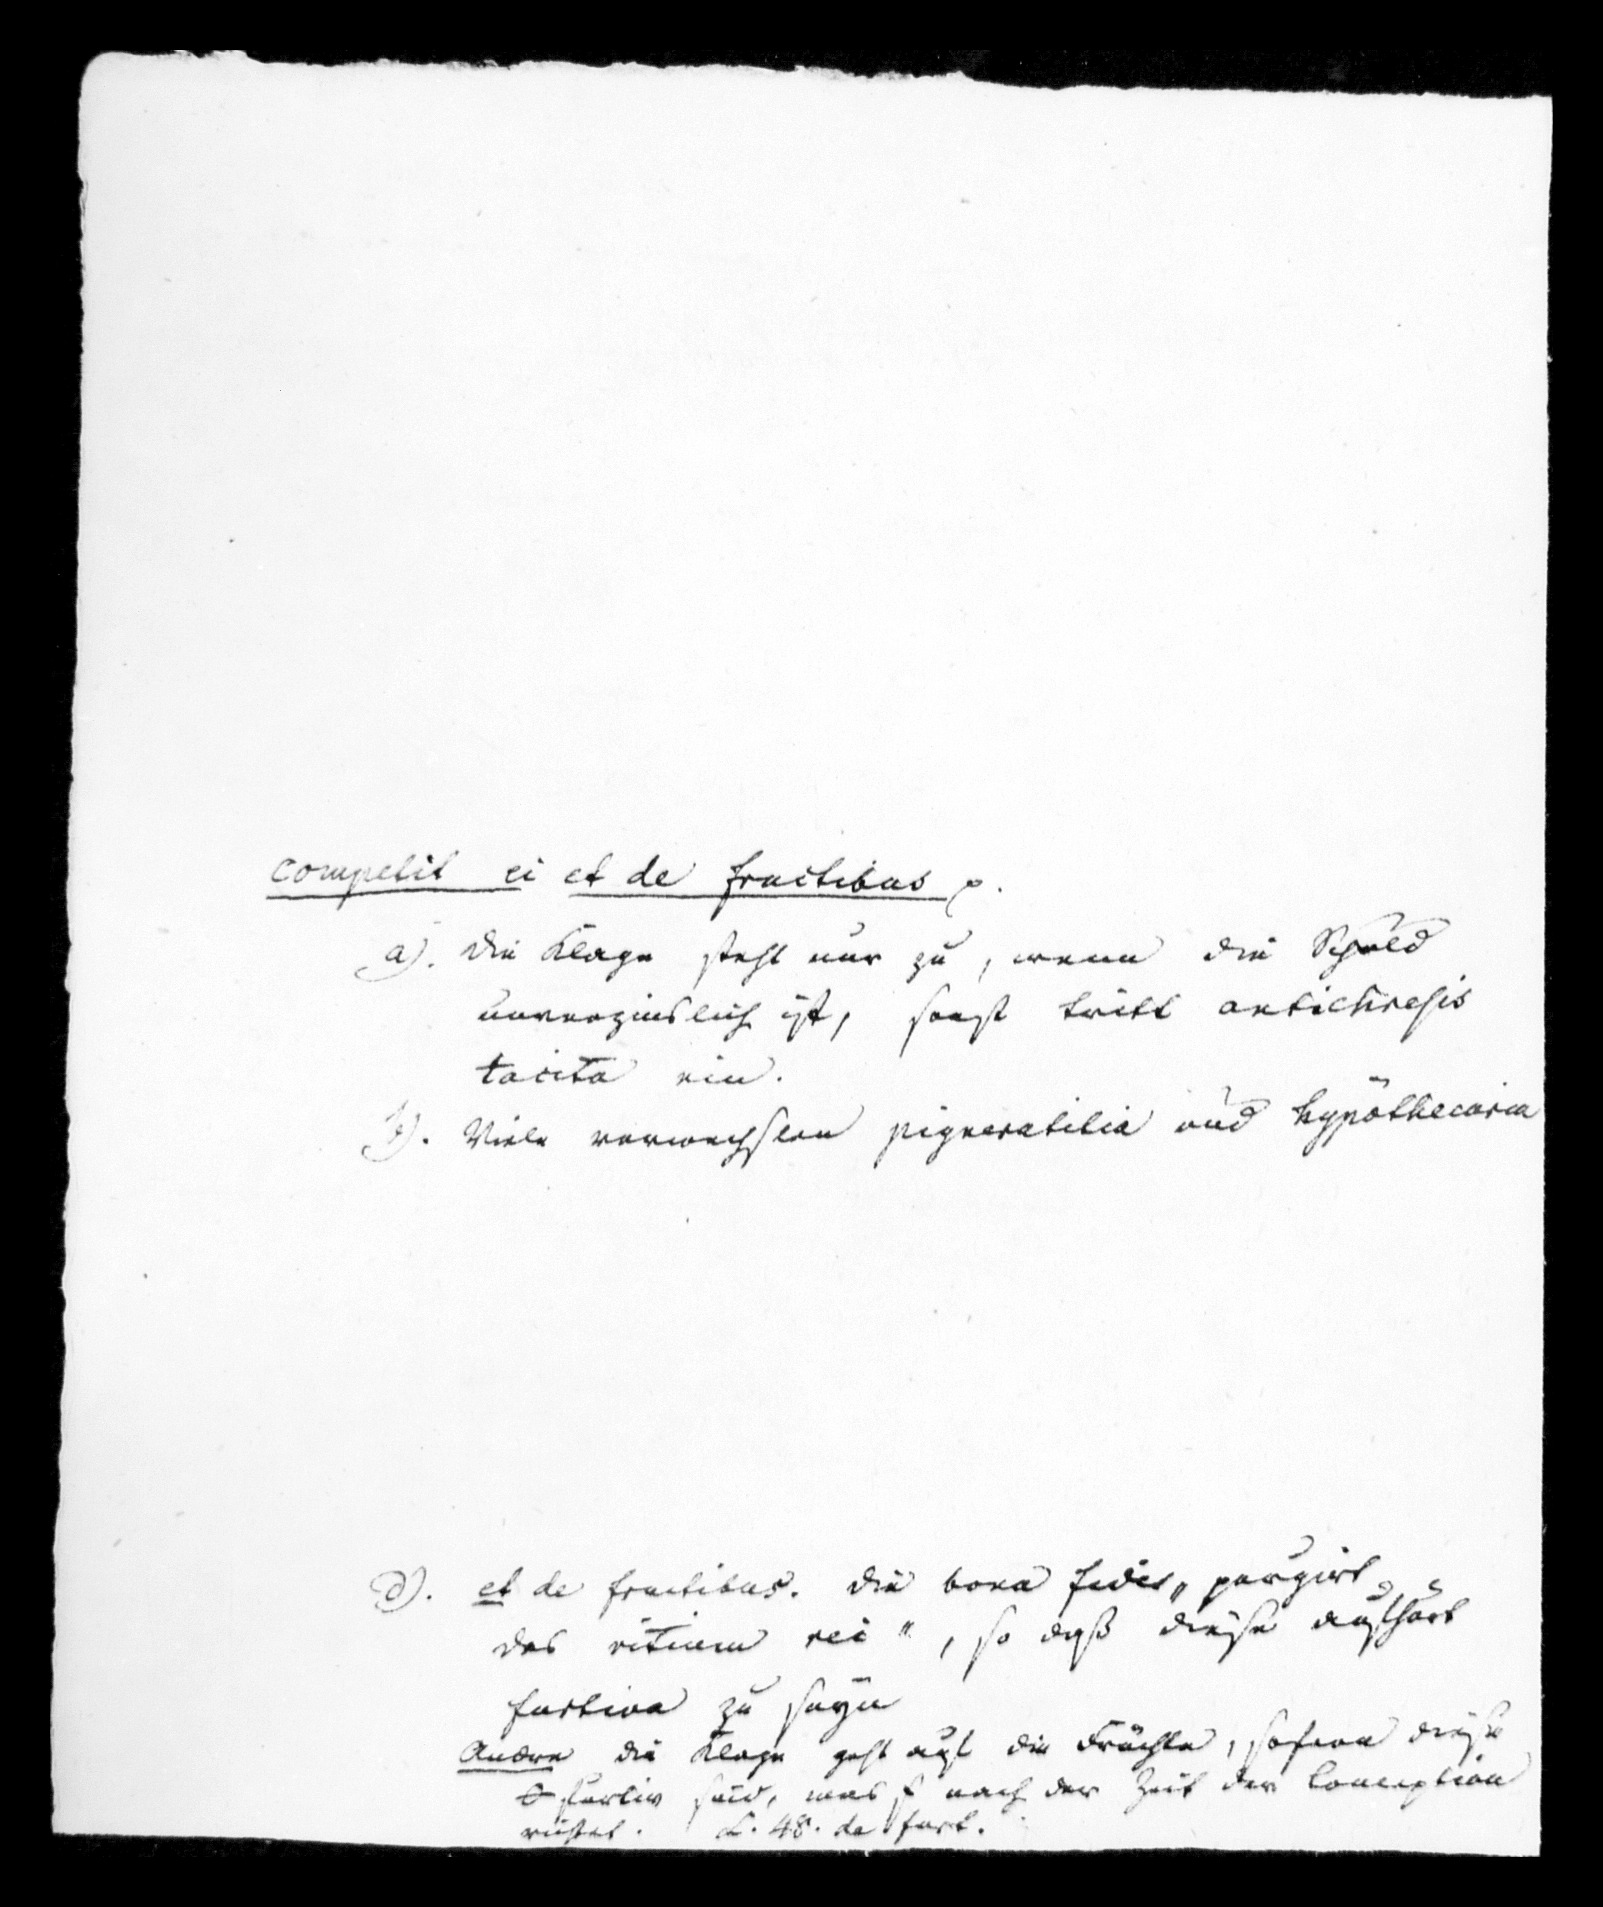 competit ei et de fructibus p.
a). Die Klage steht nur zu, wenn die Schuld
unverzinslich ist, sonst tritt antichresis
tacita ein.
b). Viele verwechseln pigneratitia und hypothecaria
d). et de fructibus. Die bona fides „purgirt
das vitium rei“, so daß diese aufhört
furtiva zu seyn
Andre die Klage geht auf die Früchte, sofern diese
furtiv sind, was nach der Zeit der Conception
L. 48. de furt.